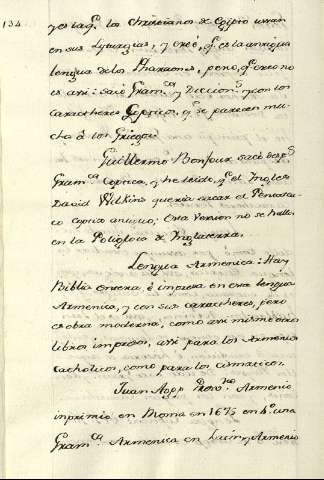 134
y es la q.e los Christianos de Egipto usan
en sus Lyturgias, y creé, q.e es la antigua
lengua de los Pharaones, pero, q.e creo no
es asi: sacó Gram.ca y Diccion.o y con los
caractheres Copticos, q.e se parecen mu-
cho á los Griegos.
Guillermo Bonjour sacó desp.s
Gram.ca Coptica, y he leído, q.e el Ingles
David Wilkins queria sacar el Pentateu-
co coptico antiguo, esta version no se halla
en la Poliglota de Inglaterra.
Lengua Armenica: Hay
Biblia entera, é impresa en esta lengua
Armenica, y con sus caractheres, pero
es obra moderna, como asi mismo otros
libros impresos, asi para los Armenios
catholicos, como para los cismaticos.
Juan Agop Armenio
imprimió en Roma en 1675 en 4.o una
Gram.ca Armenica en Latin y Armenio